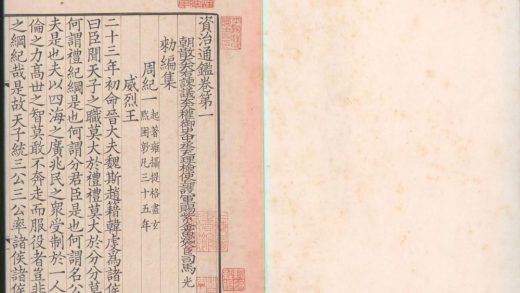 資治通鑑卷第一
朝散大夫右諫議大夫權御史中丞充理檢使上護軍賜紫金魚袋臣司馬光
勑編集
周紀一 起著雍攝提格盡玄
黓困敦凡三十五年
威烈王
二十三年初命晉大夫魏斯趙籍韓虔爲諸侯
曰臣聞天子之職莫大於禮禮莫大於分分莫
何謂禮紀綱是也何謂分君臣是也何謂名公
夫是也夫以四海之廣兆民之衆受制於一人
倫之力高世之智莫敢不奔走而服役者豈非
之綱紀哉是故天子統三公三公率諸侯諸侯